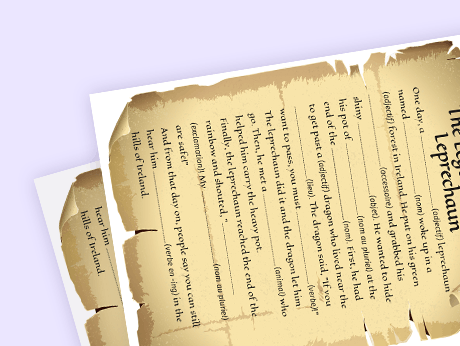 The Leg
Leprechaun
One day, a (adjectif) leprechaun
named (nom) woke up in a
(adjectif) forest in Ireland. He put on his green
(accessoire) and grabbed his
shiny (objet). He wanted to hide
his pot of (nom au pluriel) at the
end of the (nom). First, he had
to get past a (adjectif) dragon who lived near the
(lieu). The dragon said, "If you
want to pass, you must (verbe)!"
The leprechaun did it and the dragon let him
go. Then, he met a (animal) who
helped him carry the heavy pot.
Finally, the leprechaun reached the end of the
rainbow and shouted, "
(exclamation)! My (nom au pluriel)
are safe!"
And from that day on, people say you can still
hear him (verbe en -ing) in the
hills of Ireland.
hear him
hills of Ireland.